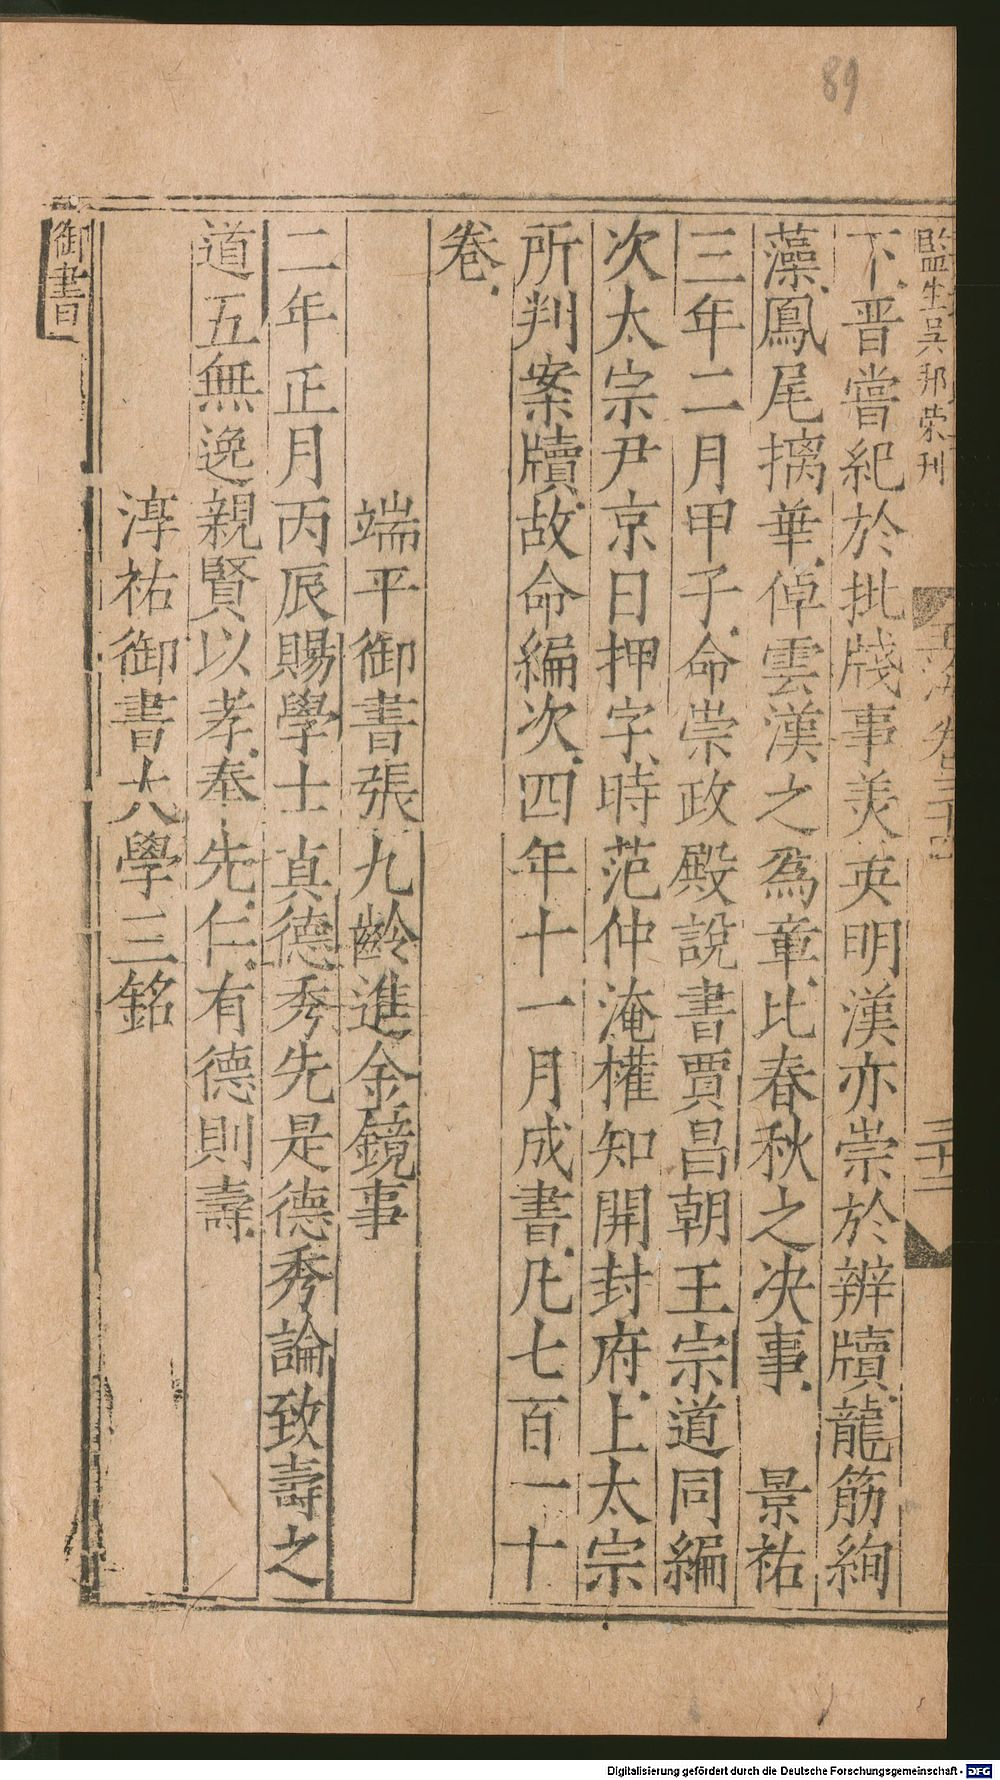 89
監生吳邦荣刊
玉海 卷三十四
三十二
下晋嘗紀於批牋事羙英明漢亦崇於辨牘龍筋絢
藻鳳尾摛華倬雲漢之爲章比春秋之决事 景祐
三年二月甲子命崇政殿說書賈昌朝王宗道同編
次太宗尹京日押字時范仲淹權知開封府上太宗
所判案牘故命編次四年十一月成書凡七百一十
卷
端平御書張九齡進金鏡事
二年正月丙辰賜學士真德秀先是德秀論致壽之
道五無逸親賢以孝奉先仁有德則壽
淳祐御書大學三銘
御書
Digitalisierung gefördert durch die Deutsche Forschungsgemeinschaft - DFG